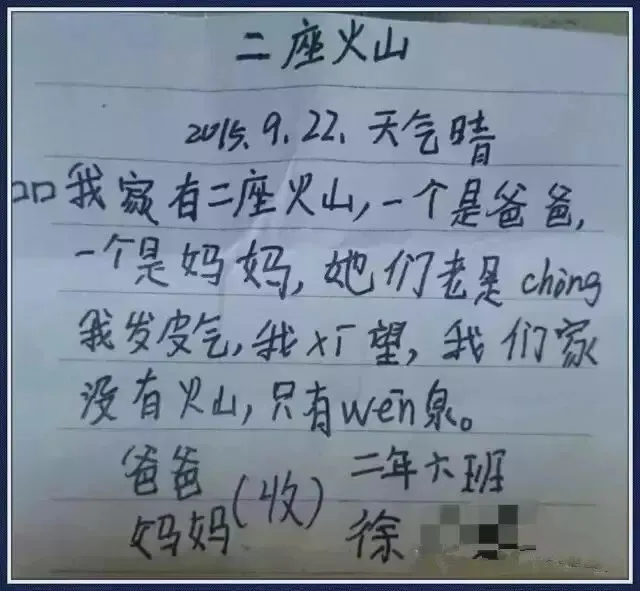 二座火山
2015.9.22.天气晴
口口我家有二座火山,一个是爸爸,
一个是妈妈,她们老是chòng
我发皮气,我xī望,我们家
没有火山,只有wēn泉。
爸爸 二年六班
妈妈(收) 徐